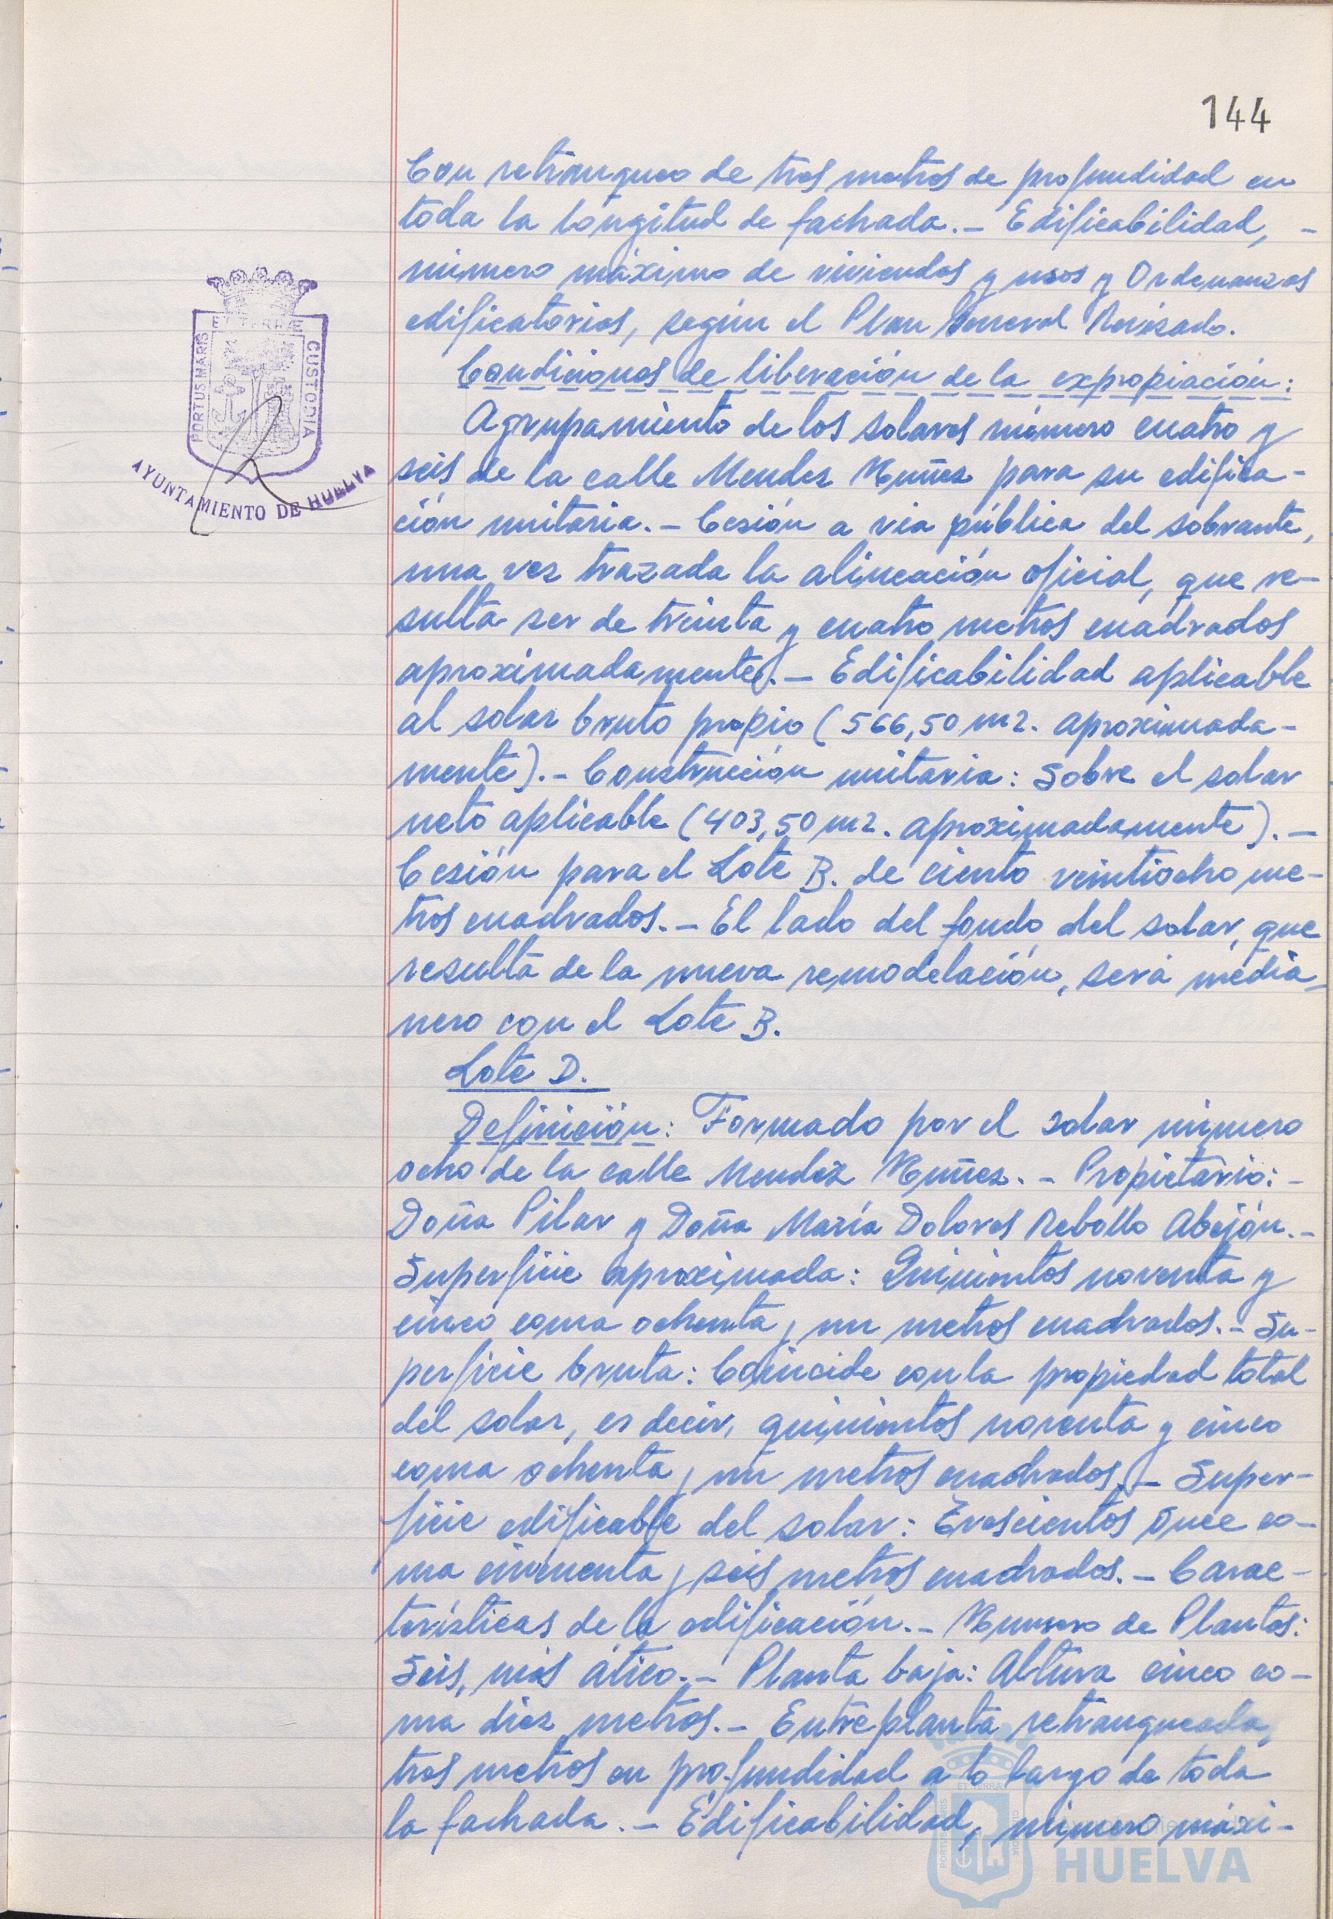 144
Con retranqueo de tres metros de profundidad en
toda la longitud de fachada.- Edificabilidad, -
número máximo de viviendas y usos y Ordenanzas
edificatorias, según el Plan General Revisado.
Condiciones de liberación de la expropiación:
Agrupamiento de los solares número cuatro y
seis de la calle Mendez Nuñez para su edifica-
ción unitaria.- Cesión a via pública del sobrante,
una vez trazada la alineación oficial, que re-
sulta ser de treinta y cuatro metros cuadrados
aproximadamente.- Edificabilidad aplicable
al solar bruto propio (566,50 m2. aproximada-
mente).- Construcción unitaria: Sobre el solar
neto aplicable (403,50 m2. aproximadamente).-
Cesión para el Lote B. de ciento veintiocho me-
tros cuadrados.- El lado del fondo del solar, que
resulta de la nueva remodelación, será media-
nero con el Lote B.
Lote D.
Definición: Formado por el solar número
ocho de la calle Mendez Nuñez.- Propietario:-
Doña Pilar y Doña María Dolores Rebollo Abejón.-
Superficie aproximada: Quinientos noventa y
cinco coma ochenta y un metros cuadrados.- Su-
perficie bruta: Coincide con la propiedad total
del solar, es decir, quinientos noventa y cinco
coma ochenta y un metros cuadrados.- Super-
ficie edificable del solar: Trescientos once co-
ma cincuenta y seis metros cuadrados.- Carac-
terísticas de la edificación.- Numero de Plantas:
Seis, más ático.- Planta baja: Altura cinco co-
ma diez metros.- Entreplanta retranqueada
tres metros en profundidad a lo largo de toda
la fachada.- Edificabilidad, número máxi-
PORTUS MARIS ET TERRAE CUSTODIA
AYUNTAMIENTO DE HUELVA
HUELVA